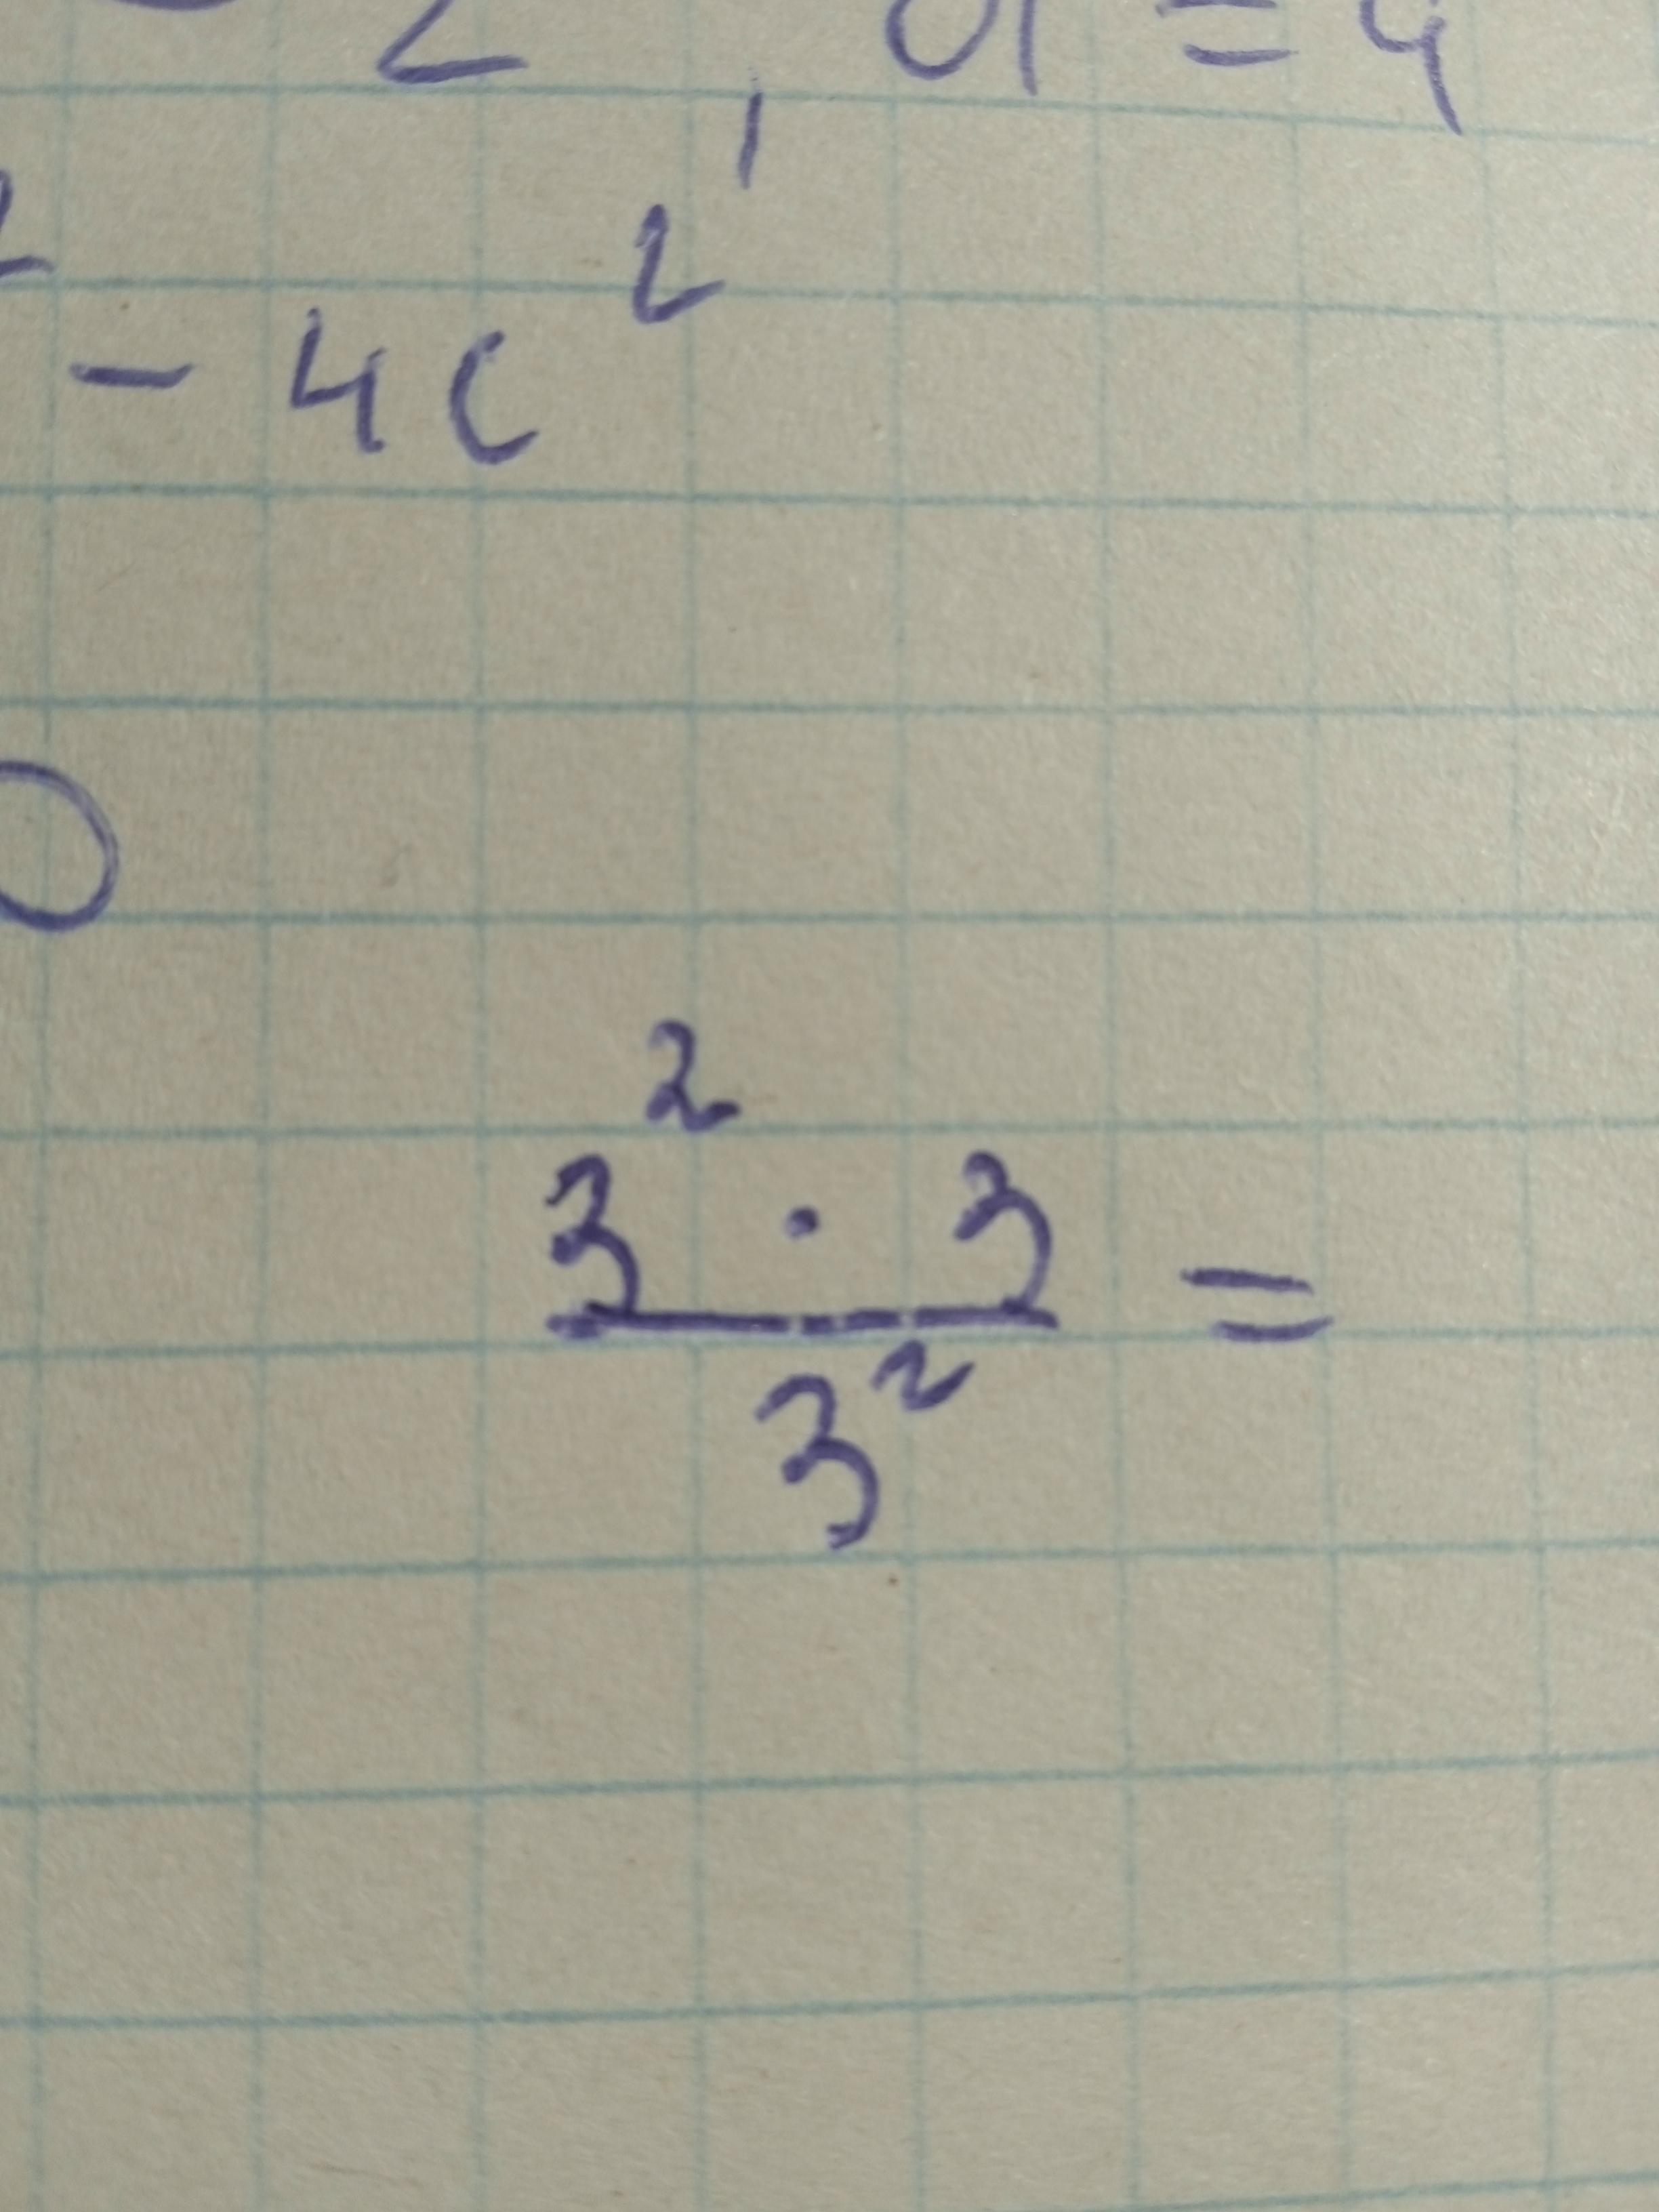 2, d = 4
- 4c²
0
3² · 3
3²
=